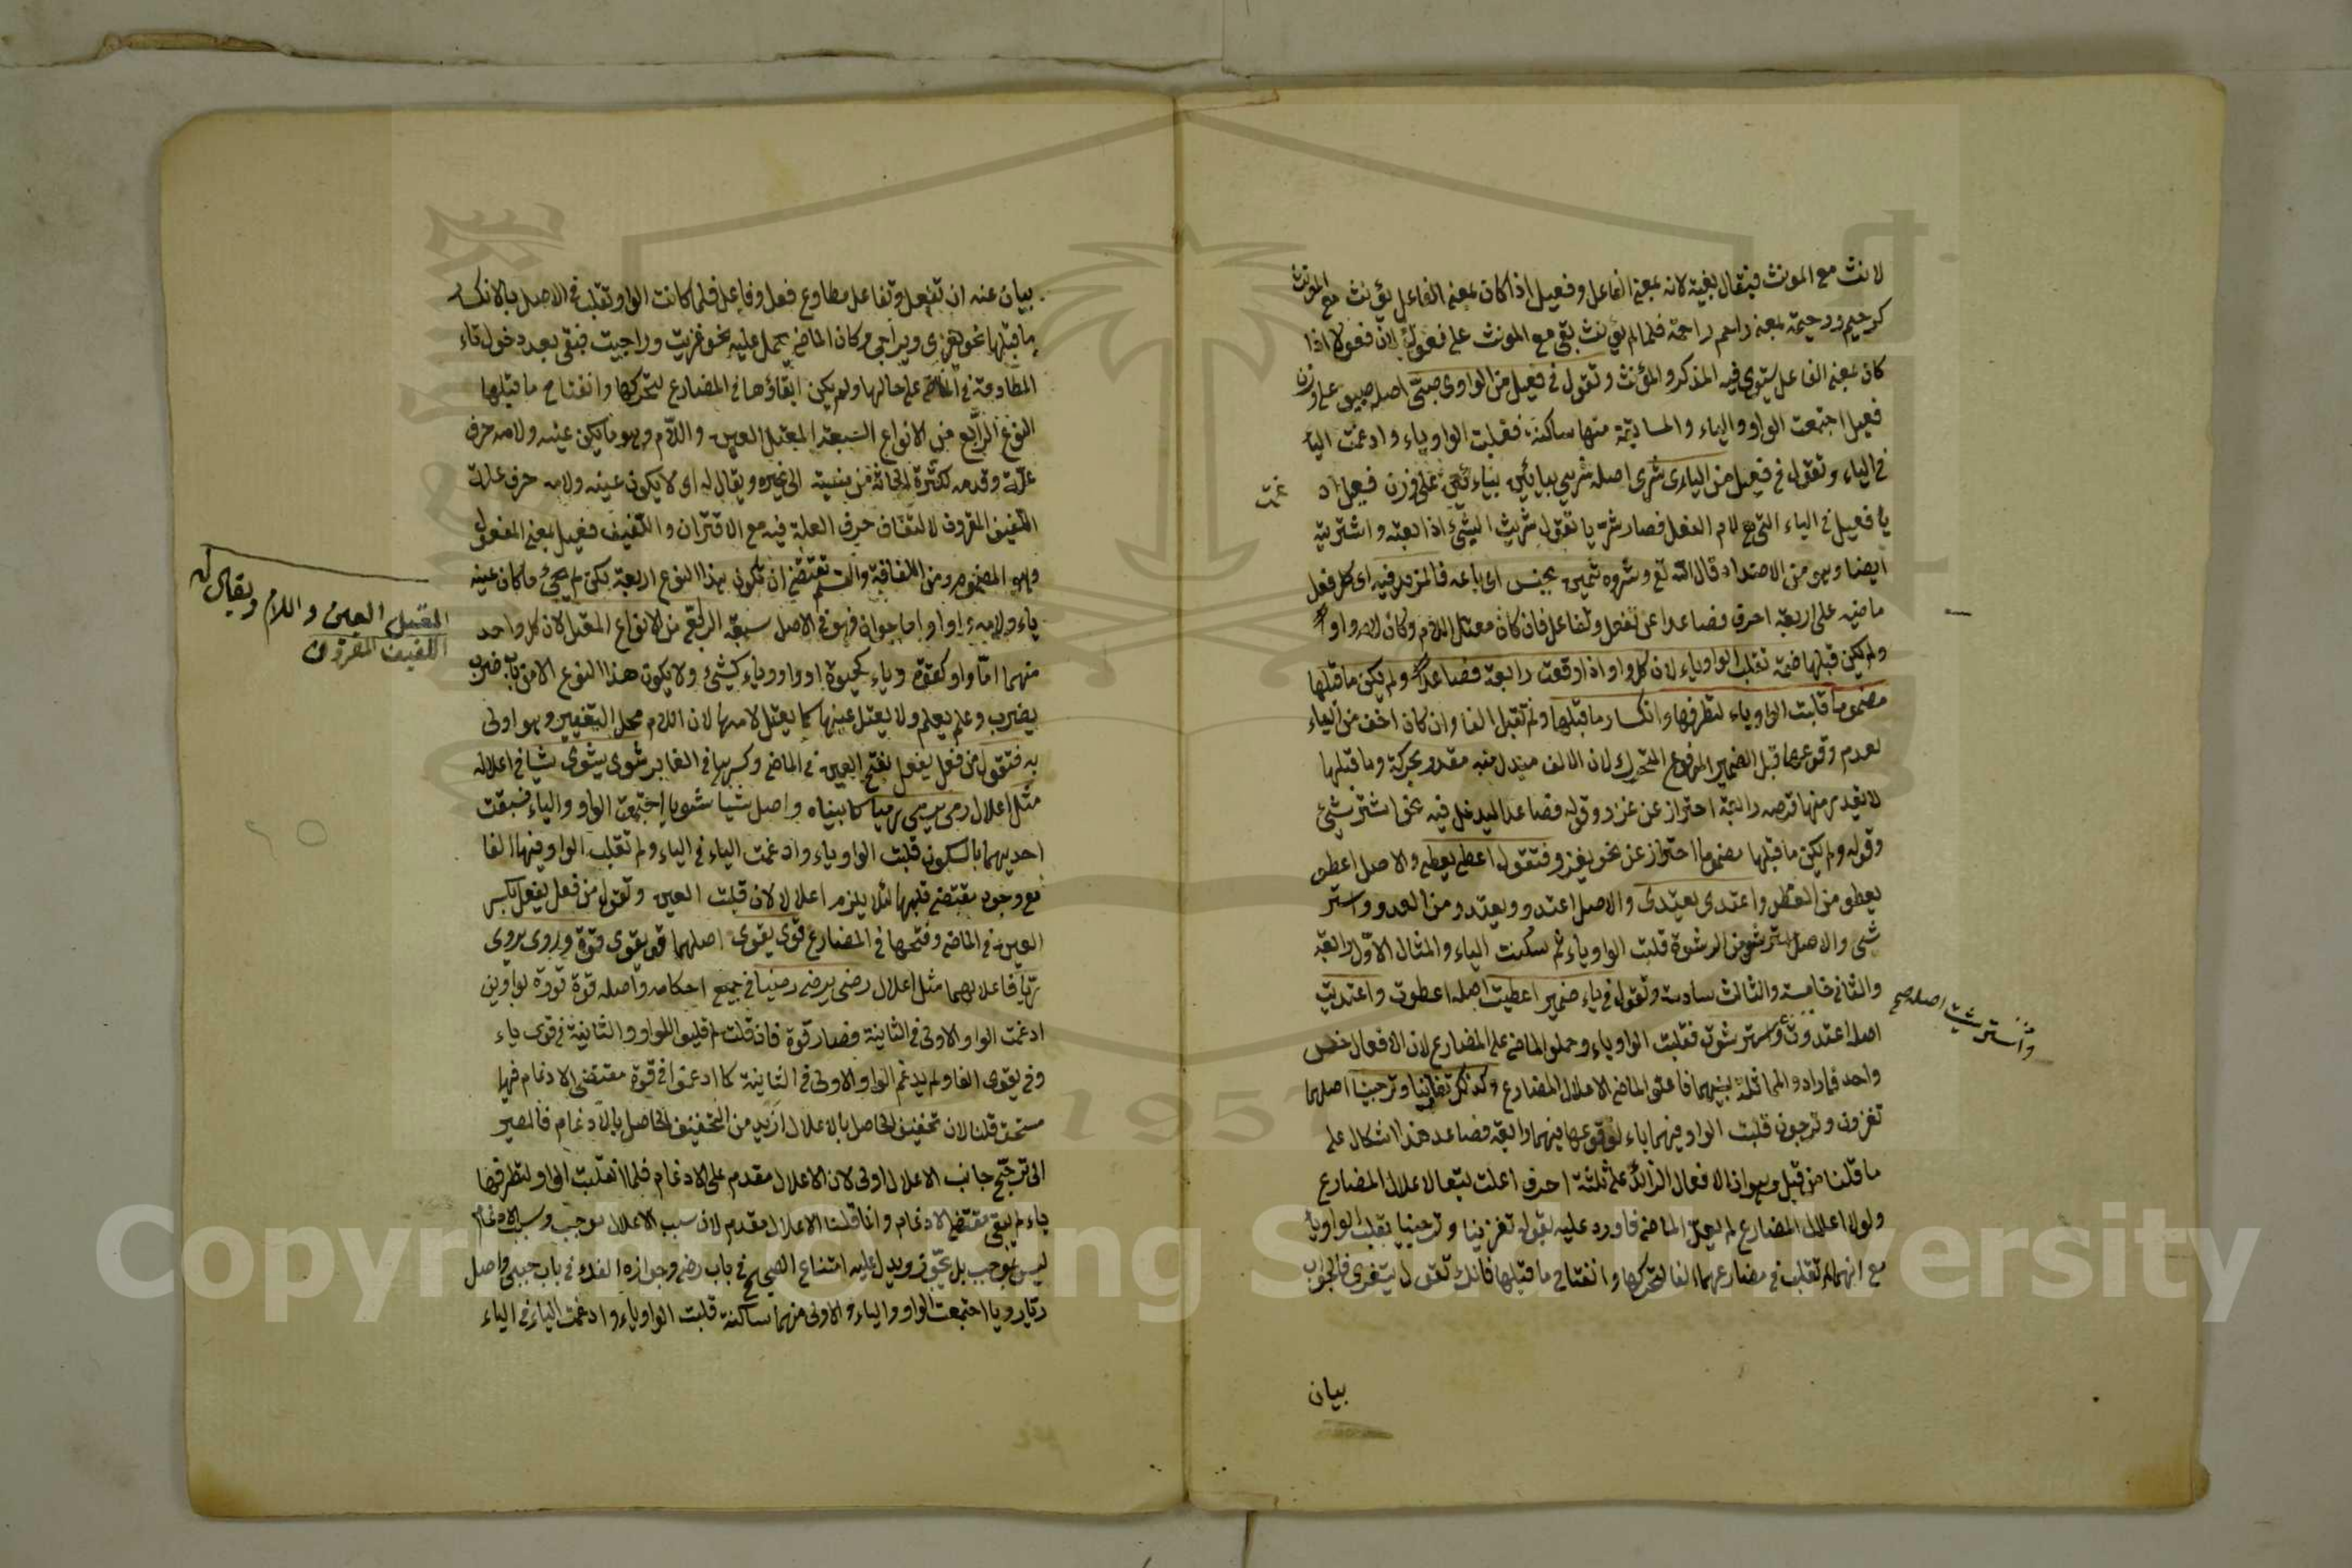 لانث مع المونث فيقال بغية لانه بمعنى الفاعل وفعيل اذا كان بمعنى الفاعل يؤنث مع المونث
كرحيم ورحيمة بمعنى راحم راحمة فلما لم يؤنث بقى مع المونث على فعول لان فعولا اذا
كان بمعنى الفاعل يستوى فيه المذكر والمؤنث وتقول فى فعيل من الواوى صبى اصله صبيو على وزن
فعيل اجتمعت الواو والياء والسابقة منها ساكنة فقلبت الواو ياء وادغمت الياء
فى الياء وتقول فى فعيل من اليائى شرى اصله شريى بيائين على وزن فعيل اد
غمت
يا فعيل فى الياء التى هى لام الفعل فصار شريا تقول شريت الشئ اذا بعته واشتريته
ايضا وهو من الاضداد قال الله تع وشروه بثمن بخس اى باعه فالمزيد فيه اى كل فعل
ماضيه على اربعة احرف فصاعدا عن تفعل وتفاعل فان كان معتل اللام وكان لامه واوا
ولم يكن قبلها ضمة تقلب الواو ياء لان كل واو اذا وقعت رابعة فصاعدا ولم يكن ما قبلها
مضموما قلبت الواو ياء لتطرفها وانكسار ما قبلها ولم تقلب الفا وان كان اخف من الياء
لعدم وقوعها قبل الضمير المرفوع المتحرك لان الالف مبدل منه مقدر بحركة وما قبلها
لا يقدر منها قوله رابعة احتراز عن غزو وقوله فصاعدا ليدخل فيه نحو استرشى
وقوله ولم يكن ما قبلها مضموما احتراز عن نحو يغزو فتقول اعطى يعطى والاصل اعطو
يعطو من العطو واعتدى يعتدى والاصل اعتدو ويعتدو من العدو واستر
شى والاصل استرشو من الرشوة قلبت الواو ياء ثم سكنت الياء والمثال الاول رابعة
والثانى خامسة والثالث سادسة وتقول فى ياء ضمير اعطيت اصله اعطوت واعتديت
واسترشيت اصله صح
اصله اعتدوت واسترشوت فقلبت الواو ياء وحملوا الماضى على المضارع لان الافعال جنس
واحد فارادوا المماثلة بينهما فاعلوا الماضى لاعلال المضارع وكذلك تغازينا وترجينا اصلهما
تغزونا وترجونا قلبت الواو فيهما ياء لوقوعها فيهما رابعة فصاعدا هذا اشكال على
ما قلنا من قبل وهو ان الافعال الزائد على ثلثة احرف اعلت تبعا لاعلال المضارع
ولولا اعلال المضارع لم يعل الماضى فاورد عليه بقوله تغزينا وترجينا بقلب الواو ياء
مع انهما لم تقلب فى مضارعهما الفا لتحركها وانفتاح ما قبلها فانك تقول يتغزى فالجواب
بيان
بيان عنه ان تفعل وتفاعل مطاوع فعل وفاعل فلما كانت الواو تقلب فى الاصل بالانكسار
ما قبلها نحو يغزى ويراجى وكان الماضى يحمل عليه نحو غزيت وراجيت فبقى بعد دخول تاء
المطاوعة فى الماضى على حالها ولم يكن ابقاؤها فى المضارع لتحركها وانفتاح ما قبلها
النوع الرابع من الانواع السبعة المعتل العين واللام وهو ما يكون عينه ولامه حرف
علة وقدمه لكثرة ابحاثه من بنسبة الى غيره ويقال له اى لا يكون عينه ولامه حرف علة
اللفيف المقرون لالتفاف حرفى العلة فيه مع الاقتران واللفيف فعيل بمعنى المفعول
وهو المضموم ومن اللفافة والقسمة تقتضى ان تكون هذا النوع اربعة لكن لم يجئ ما كان عينه
المعتل العين واللام ويقال له
اللفيف المقرون
ياء ولامه واوا واما حيوان فهو فى الاصل سبعة الرابع من الانواع المعتل لان كل واحد
منهما اما واو كقوة وياء كحيوة او واو وياء كشئ ولا يكون هذا النوع الا من باب ضرب
يضرب وعلم يعلم ولا يعتل عينها كما يعتل لامها لان اللام محل التغيير وهو اولى
به فتقول من فعل يفعل بفتح العين فى الماضى وكسرها فى الغابر شوى يشوى شيا فاعلاله
مثل اعلال رمى يرمى رميا كما بيناه واصل شيا شويا اجتمعت الواو والياء فسبقت
احديهما بالسكون قلبت الواو ياء وادغمت الياء فى الياء ولم تقلب الواو فيها الفا
مع وجود مقتضى قلبها لئلا يلزم اعلال لان قلبت العين وتقول من فعل يفعل بكسر
العين فى الماضى وفتحها فى المضارع قوى يقوى اصلهما قوو يقوو قوة وروى يروى
ريا فاعلالهما مثل اعلال رضى يرضى رضينا فى جميع احكامه واصله قوة قووة بواوين
ادغمت الواو الاولى فى الثانية فصار قوة فان قلت لم قلبوا الواو والثانية فى قوى ياء
وفى يقوى الفا ولم يدغم الواو الاولى فى الثانية كما ادغموا فى قوة مقتضى الادغام فيها
مستحق قلنا لان تخفيف الحاصل بالاعلال ازيد من التخفيف الحاصل بالادغام فالمصير
الى ترجيح جانب الاعلال اولى لان الاعلال مقدم على الادغام فلما انقلبت الواو لتطرفها
ياء لم يبق مقتضى الادغام وانما قلت الاعلال مقدم لان سبب الاعلال موجب وسبب الادغام
ليس بموجب بل مجوز ويدل عليه امتناع الصحيح فى باب رضى وجوازه الفك فى باب حيى واصل
ريا رويا اجتمعت الواو والياء والاولى منهما ساكنة قلبت الواو ياء وادغمت الياء فى الياء
1957
Copyright © King Saud University